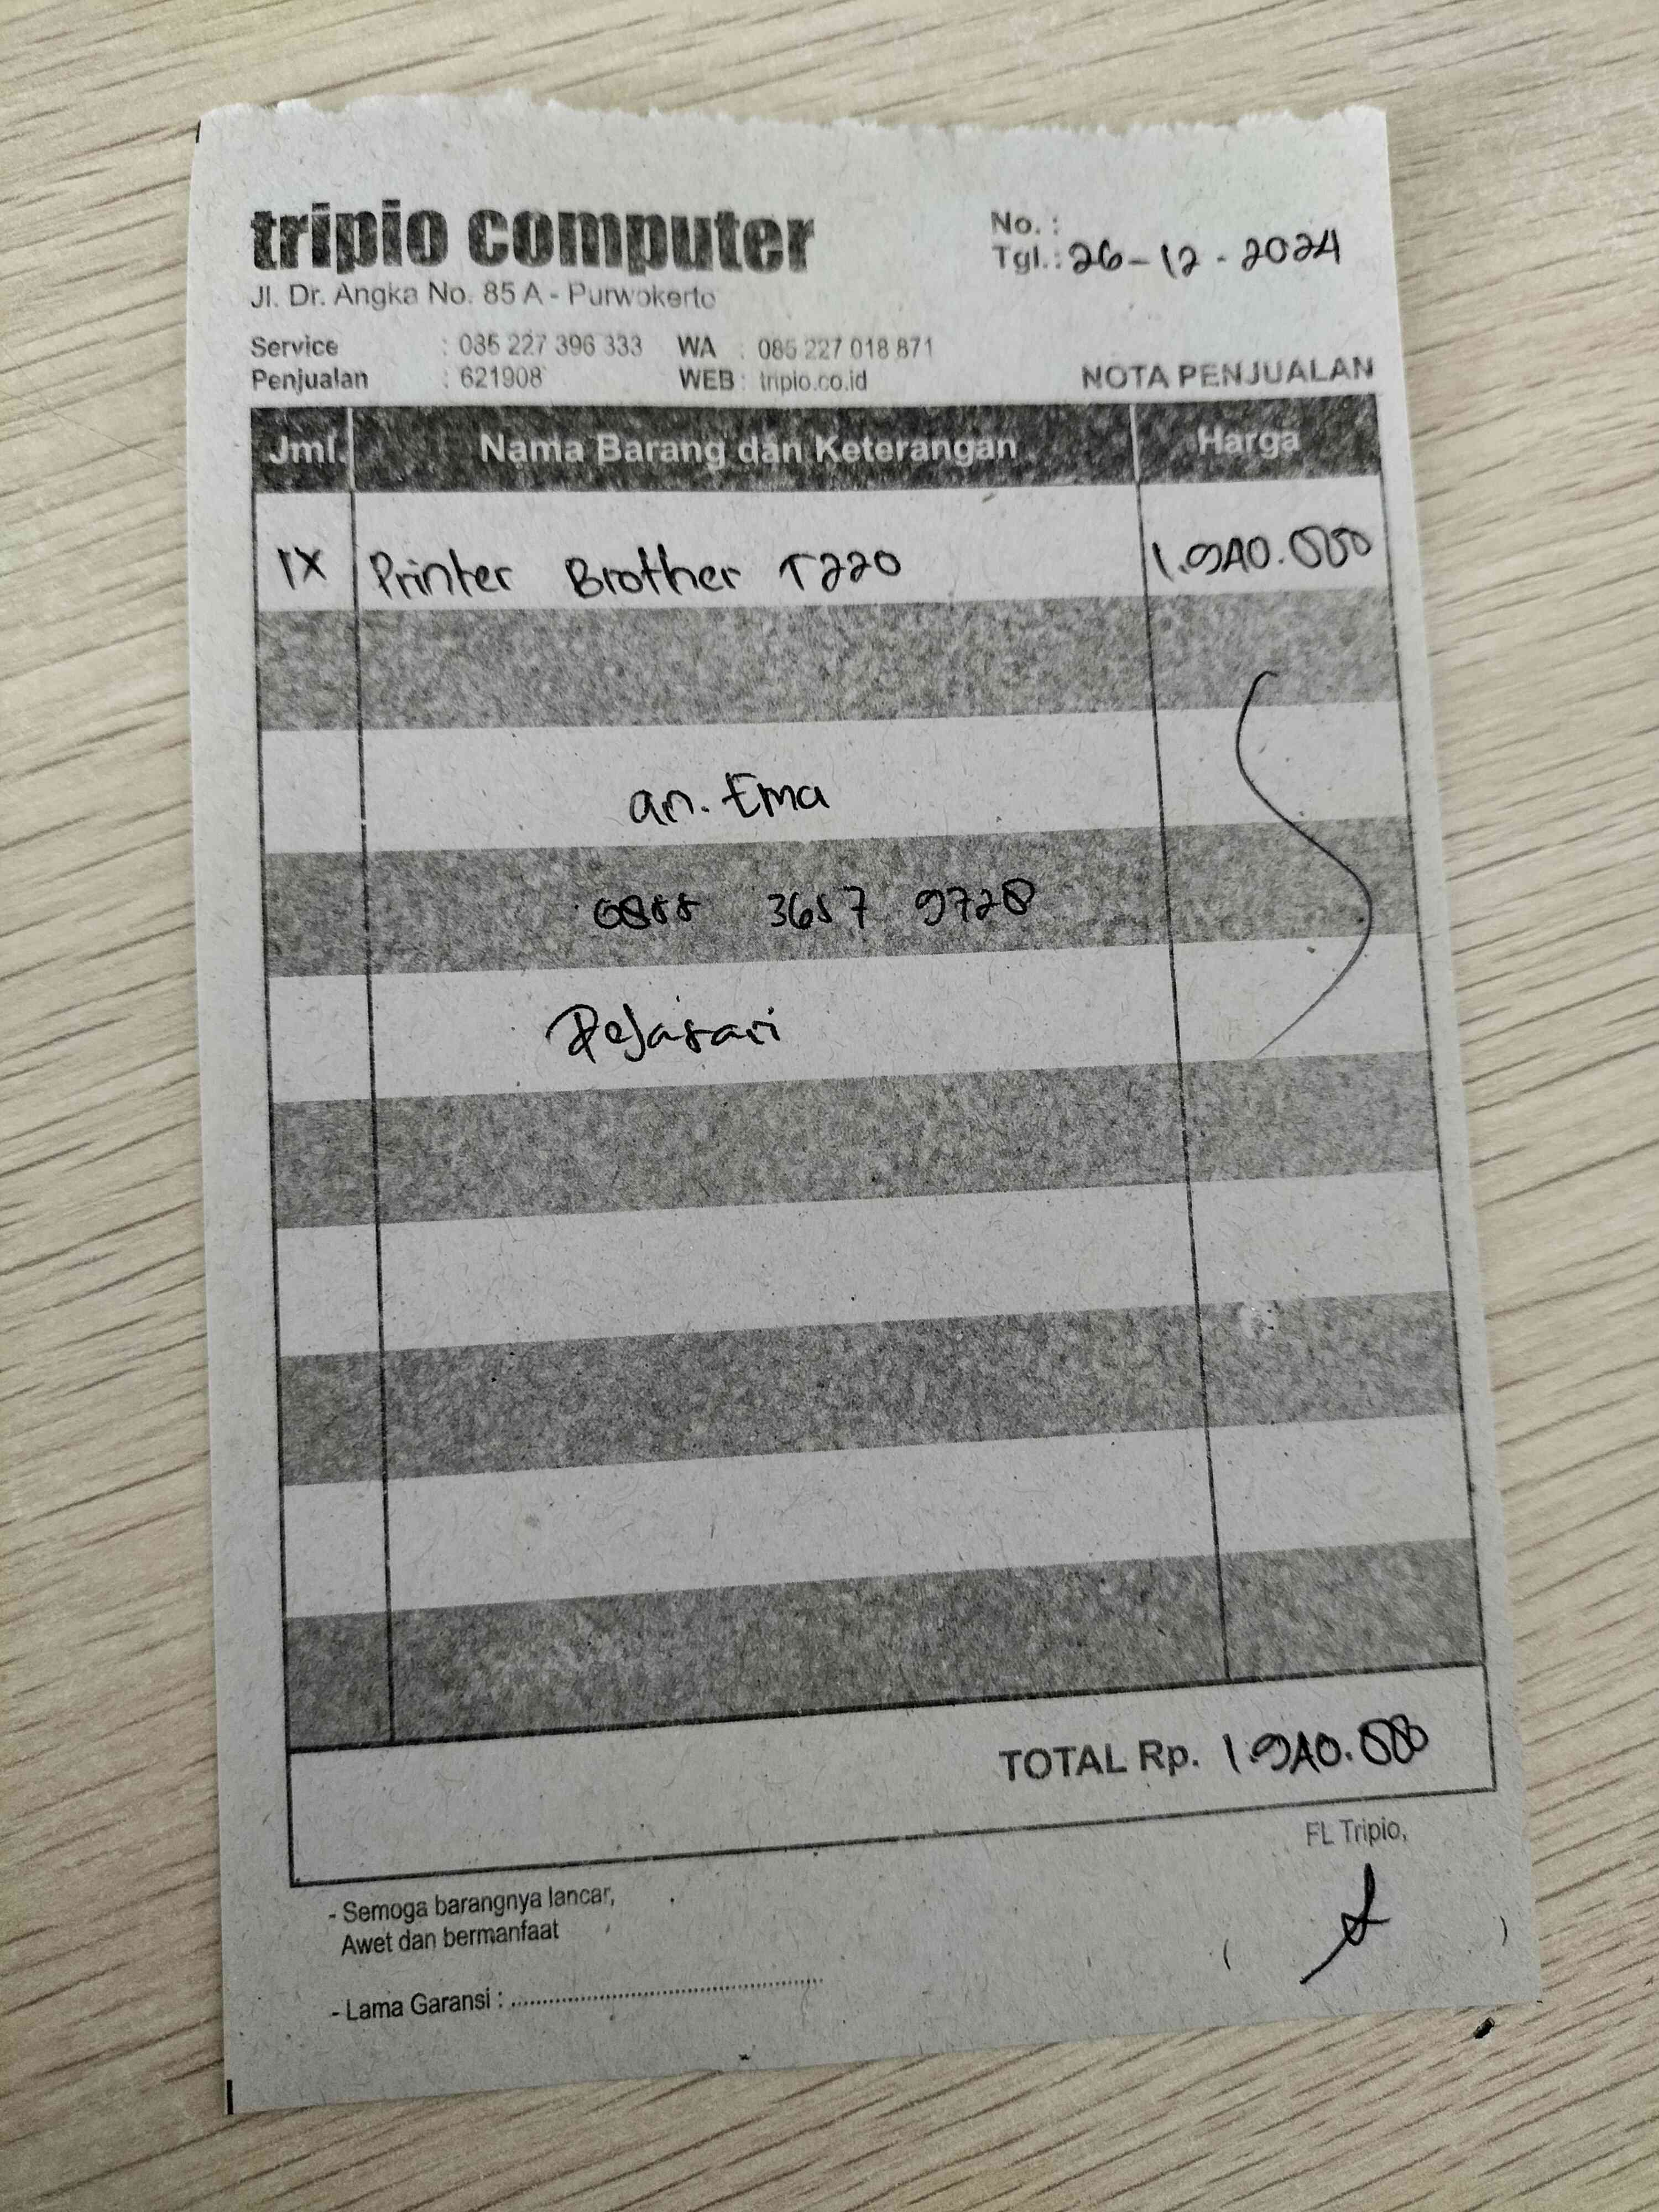 tripio computer
Jl. Dr. Angka No. 85 A - Purwokerto
No. :
Tgl.: 26-12-2024
Service : 085 227 396 333 WA : 085 227 018 871
Penjualan : 621908 WEB : tripio.co.id
NOTA PENJUALAN
Jml. Nama Barang dan Keterangan Harga
1X Printer Brother T220 1.940.000
an. Ema
0888 3657 9728
Rejasari
TOTAL Rp. 1.940.000
FL Tripio,
- Semoga barangnya lancar,
Awet dan bermanfaat
- Lama Garansi : ......................................................
( )